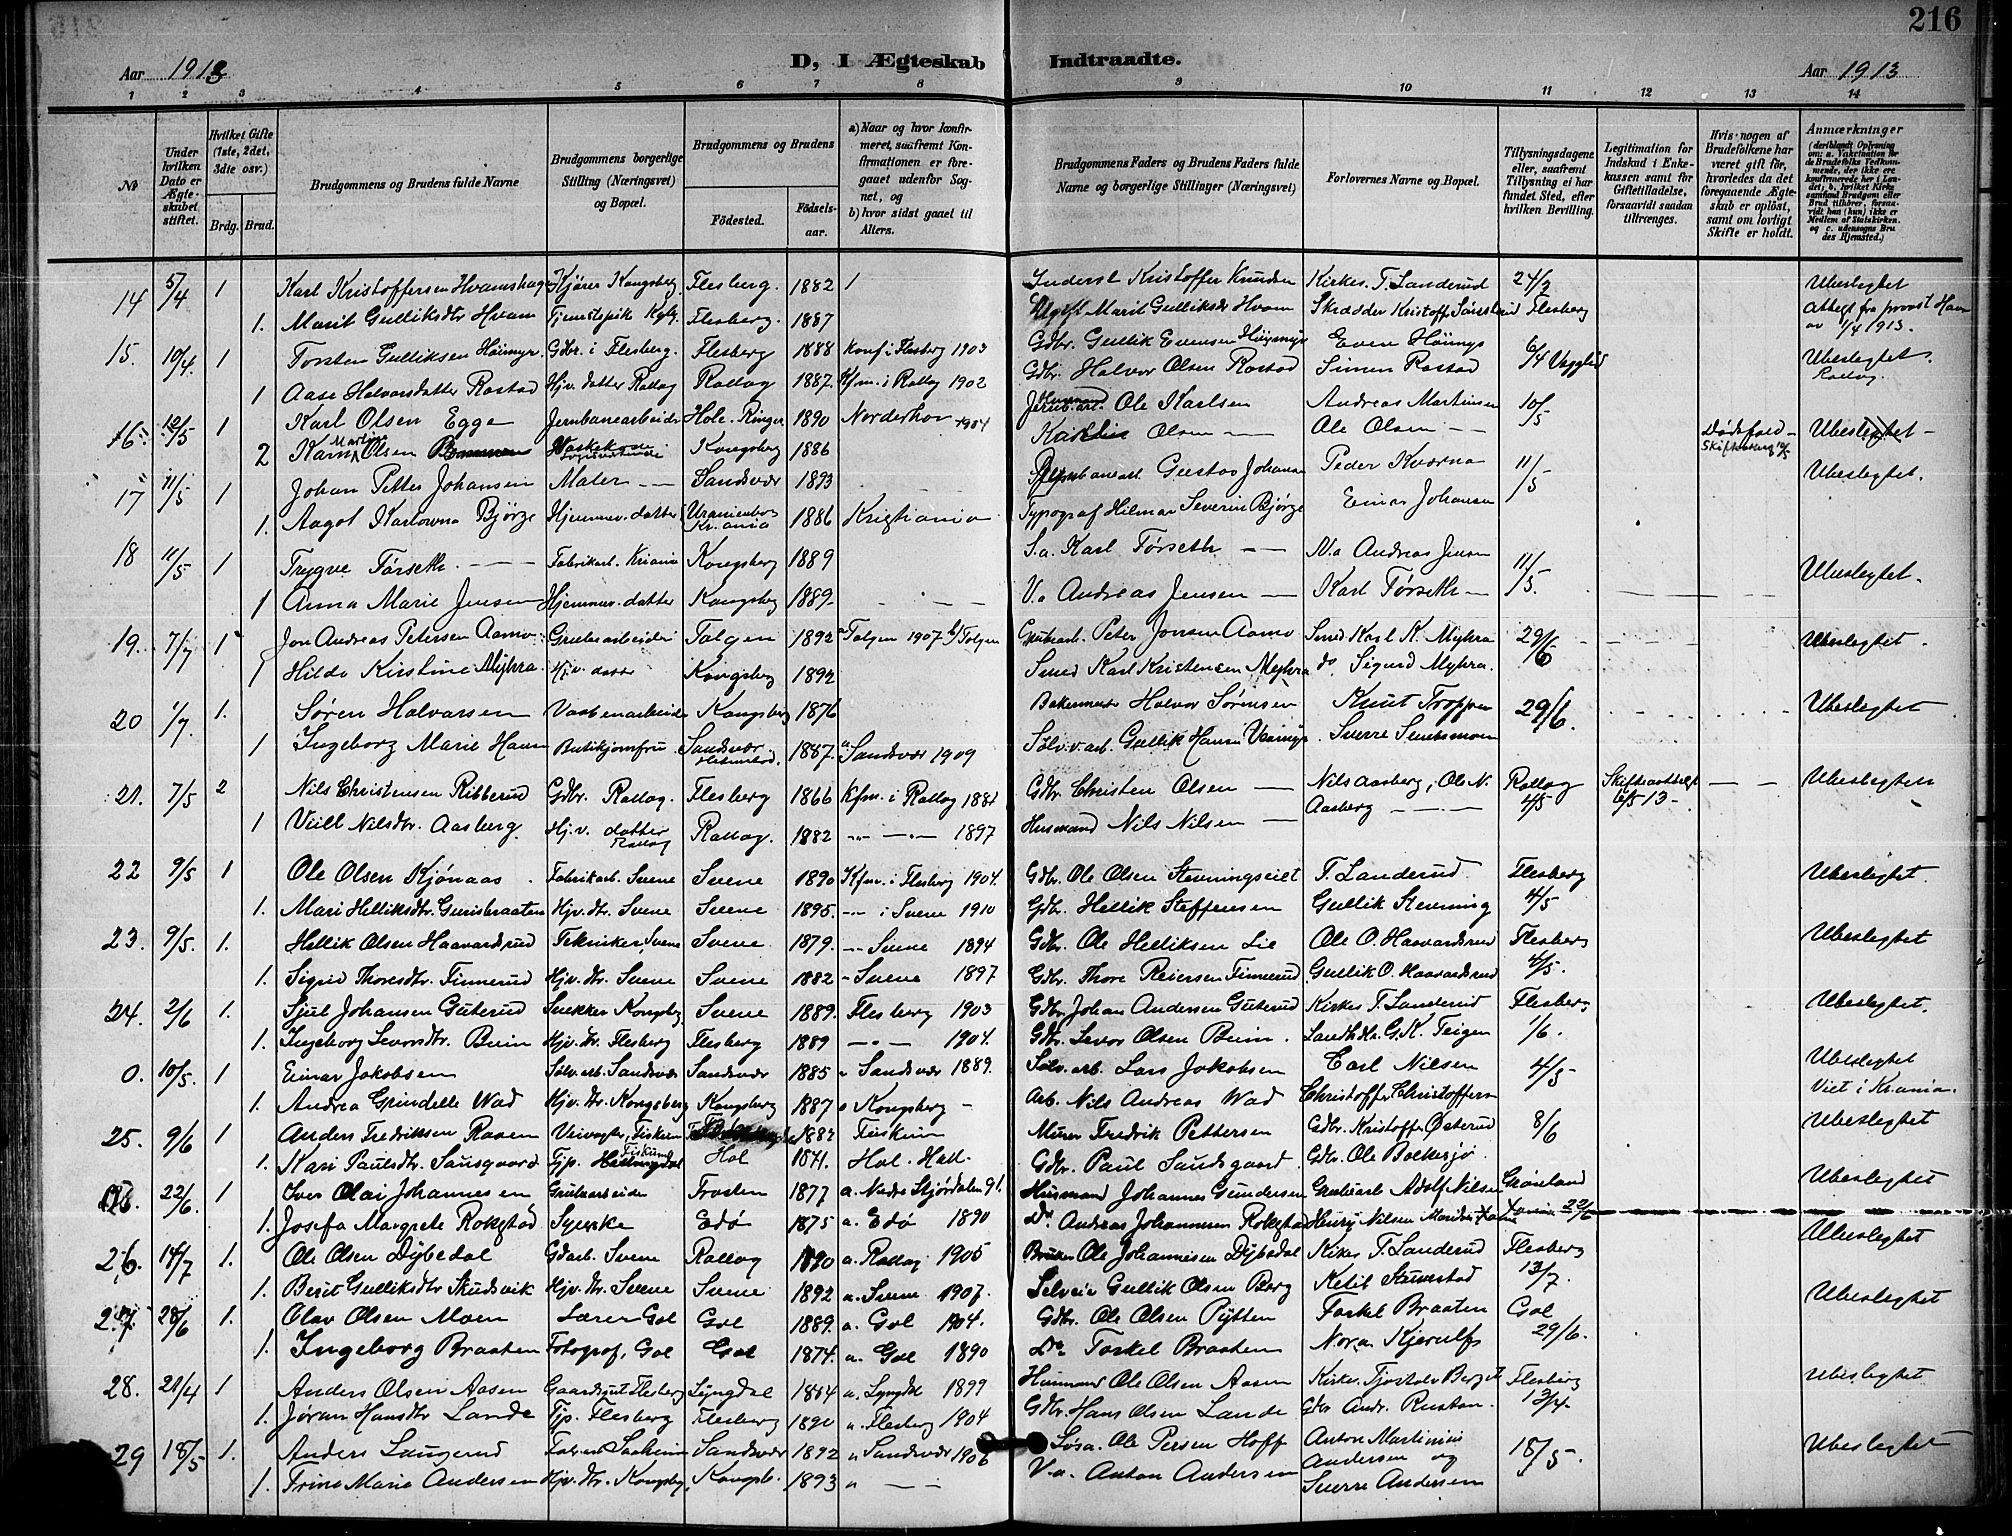 216
D, I Ægteskab Indtraadte.
Aar 1913
Aar 1913
1 2 3 4 5 6 7 8 9 10 11 12 13 14
№
Under hvilken Dato er Ægteskabet stiftet.
Hvilket Gifte (1ste, 2det, 3die osv.)
Brdg. Brud.
Brudgommens og Brudens fulde Navne
Brudgommens borgerlige Stilling (Næringsvei) og Bopæl.
Brudgommens og Brudens
Fødested.
Fødselsaar.
a) Naar og hvor konfirmeret, saafremt Konfirmationen er foregaaet udenfor Sognet, og
b) hvor sidst gaaet til Alters.
Brudgommens Faders og Brudens Faders fulde Navne og borgerlige Stillinger (Næringsvei)
Forlovernes Navne og Bopæl.
Tillysningsdagene eller, saafremt Tillysning ei har fundet Sted, efter hvilken Bevilling.
Legitimation for Indskud i Enkekassen samt for Giftetilladelse, forsaavidt saadan tiltrænges.
Hvis nogen af Brudefolkene har været gift før, hvorledes da det foregaaende Ægteskab er opløst, samt om lovligt Skifte er holdt.
Anmærkninger (deriblandt Oplysning om: a. Vaksination for de Brudefolks Vedkommende, der ikke ere konfirmerede her i Landet; b. hvilket Kirkesamfund Brudgom eller Brud tilhører, forsaavidt han (hun) ikke er Medlem af Statskirken, og c. udensogns Brudes Hjemsted.)
14 5/4 1 Karl Kristoffersen Hvamshage Kjører Kongsberg Flesberg. 1882 Inderst Kristoffer Knudsen Kirkes. T. Landerud 24/3 Ubeslegtet
1. Marit Gulliksdtr Hvam Tjenestepike Kgbg. Flesberg. 1887 Ugift Marit Gulliksdr Hvam Skrædder Kristoffer Flesberg Attest fra provst av 1/4 1913.
15. 10/4. 1 Torsten Gulliksen Høimyr Gdbr. i Flesberg. Flesberg 1888 Konf i Flesberg 1903 Gdbr. Gullik Evensen Høymyr Even Høimyr 6/4 Ubeslegtet.
1 Aase Halvorsdatter Rostad Hjv. datter Rollag Rollag 1887. Kfm. i Rollag 1902 Gdbr. Halvor Olsen Rostad Simen Rostad Rollag.
16. 12/5 1 Karl Olsen Egge Jernbanearbeider Hole. Ringer. 1890 Norderhov 1904 Ole Karlsen Andreas Martinsen 10/5 Dødsfald Ubeslegtet
2 Karn Martin Olsen Kongsberg 1886 Olsen Ole Olsen Skifteattest
17 11/5 1 Johan Petter Johansen Maler Sandsvær 1893 Gustav Johansen Peder Kværna 11/5 Ubeslegtet.
1. Aagot Karlowna Bjørge Hjemmev. datter Uranienborg Kr.ania 1886 Kristiania Typograf Hilmar Severin Bjørge Einar Johansen
18 11/5 1 Trygve Førseth Fabrikarb. Kr.ania Kongsberg 1889 S.a. Karl Førseth V.a Andreas Jensen 11/5. Ubeslegtet.
1 Anna Marie Jensen Hjemmev. datter Kongsberg 1889 V.a Andreas Jensen Karl Førseth
19. 7/7 1 Jon Andreas Petersen Aamo Grubearbeider Tolgen 1892 a Tolgen 1907 b/ Tolgen Grubearb. Peter Jonsen Aamo Smed Karl K. Myhra 29/6 Ubeslegtet.
1 Hilda Kirstine Myhra. Hj.v. datter Kongsberg 1892 Smed Karl Kristensen Myhra do Sigurd Myhra.
20 1/7. 1. Søren Halvorsen Vaabenarbeider Kongsberg 1876 Bakermester Halvor Sørensen Knut Troppen 29/6. Ubeslegtet
1 Ingeborg Marie Hansen Butikjomfru Sandsvær 1887. a Sandsvær 1909 Sølv.v.arb. Gullik Hansen Sverre
21. 7/5 2 Nils Christensen Ribberud Gdbr. Rollag. Flesberg 1866 Kfm. i Rollag 1881 Gdbr. Christen Olsen Nils Aasberg, Ole N. Aasberg Rollag 4/5 Skifteattest 6/5 13 Ubeslegtet
1 Veill Nilsdtr. Aasberg. Hj.v. datter Rollag Rollag. 1882 1897 Husmand Nils Nilsen
22 9/5 1 Ole Olsen Kjønaas. Fabrikarb. Svene Svene 1890 Kfm. i Flesberg 1904. Gdbr. Ole Olsen T. Landerud. Flesberg 4/5 Ubeslegtet.
1. Mari Helliksdtr. Gunisbraaten Hjv. dtr. Svene Svene 1895. i Svene 1910 Gdbr. Hellik Steffensen Gullik Stevning
23. 9/5. 1. Hellik Olsen Haavardsrud Tekniker, Svene Svene 1879. Svene 1894 Gdbr. Ole Helliksen Lie Ole O. Haavardsrud Flesberg 4/5. Ubeslegtet
1. Sigrid Thoresdtr. Finnerud Hjv. dtr. Svene Svene 1882 Svene 1897 Gdbr. Thore Reiersen Finnerud Gullik O. Haavardsrud
24. 2/6 1. Sjul Johansen Guterud Snekker Kongsbg. Svene 1889. Flesberg 1903 Gdbr. Johan Andersen Guterud Kirkes T. Landerud Flesberg 1/6. Ubeslegtet.
1. Ingeborg Sevorsdtr. Bein Hjv. dtr. Flesberg Flesberg 1889 1904. Gdbr. Sevor Olsen Bein. Landhdl. G.K. Teigen
0. 10/5. 1 Einar Jakobsen Sølv.arb. Sandsvær Sandsvær 1885 Sandsvær 1889. Sølv.arb. Lars Jakobsen Carl Nielsen 4/5 Ubeslegtet
1. Andrea Gundelle Wad Hjv. dtr. Kongsberg Kongsberg 1887 Kongsberg Arb. Nils Andreas Wad Christoffer Christoffersen Viet i Kr.ania.
25. 9/6 1 Anders Fredriksen Raaen Veivogter, Fiskum 1882 Fiskum Murer Fredrik Pettersen Gdbr. Kristoffer Østerud 8/6 Ubeslegtet
1. Kari Paulsdtr. Sausgaard Tjp. Fiskum Hol 1871. Hol. Hall. Gdbr. Paul Sandsgaard Gdbr. Ole Bollesjø.
22/6. 1 Iver Olai Johannesen Grubearbeider Frosten 1877 a. Nedre Stjørdalen 91. Husmand Johannes Gundersen Grubearb Adolf Nilsen Grønland 22/6 Ubeslegtet
1. Josefa Margrete Rokstad Syerske Edø 1875 a. Edø 1890 Do Andreas Johannesen Rokstad Henry Nilsen
26. 14/7 1. Ole Olsen Dybedal Gdarb. Svene Rollag 1890 a. Rollag 1905 Bruker Ole Johannesen Dybedal Kirkes T. Landerud Flesberg 13/7. Ubeslegtet
1. Berit Gulliksdtr Skudsvik Hjv. dtr. Svene Svene 1892 a. Svene 1907. Selveier Gullik Olsen Berg Ketil
27. 28/6 1. Olav Olsen Moen Lærer Gol Gol 1889. a. Gol 1904. Gdbr. Ole Olsen Pytten Torkel Braaten Gol 29/6. Ubeslegtet
1. Ingeborg Braaten Fotograf, Gol Gol 1874. a. Gol 1890 Do Torkel Braaten Nora Kjerulf
28. 21/4 1 Anders Olsen Aasen Gaardsgut Flesberg Lyngdal 1884 a. Lyngdal 1899 Husmand Ole Olsen Aasen Kirkes. Tjostolv Berget Flesberg 13/4. Ubeslegtet
1. Jøran Hansdtr Lande Tjp. Flesberg Flesberg 1890 a. Flesberg 1904 Gdbr. Hans Olsen Lande Gdbr Andr. Rustan.
29 18/5 1. Anders Laugerud Sandsvær 1892 a Sandsvær 1906 Ole Persen Hoff Anton Martinius Andersen og Sverre Andersen 18/5. Ubeslegtet
1. Trine Marie Andersen Hjv. dtr. Kongsbg. Kongsb. 1893 V.a. Anton Andersen